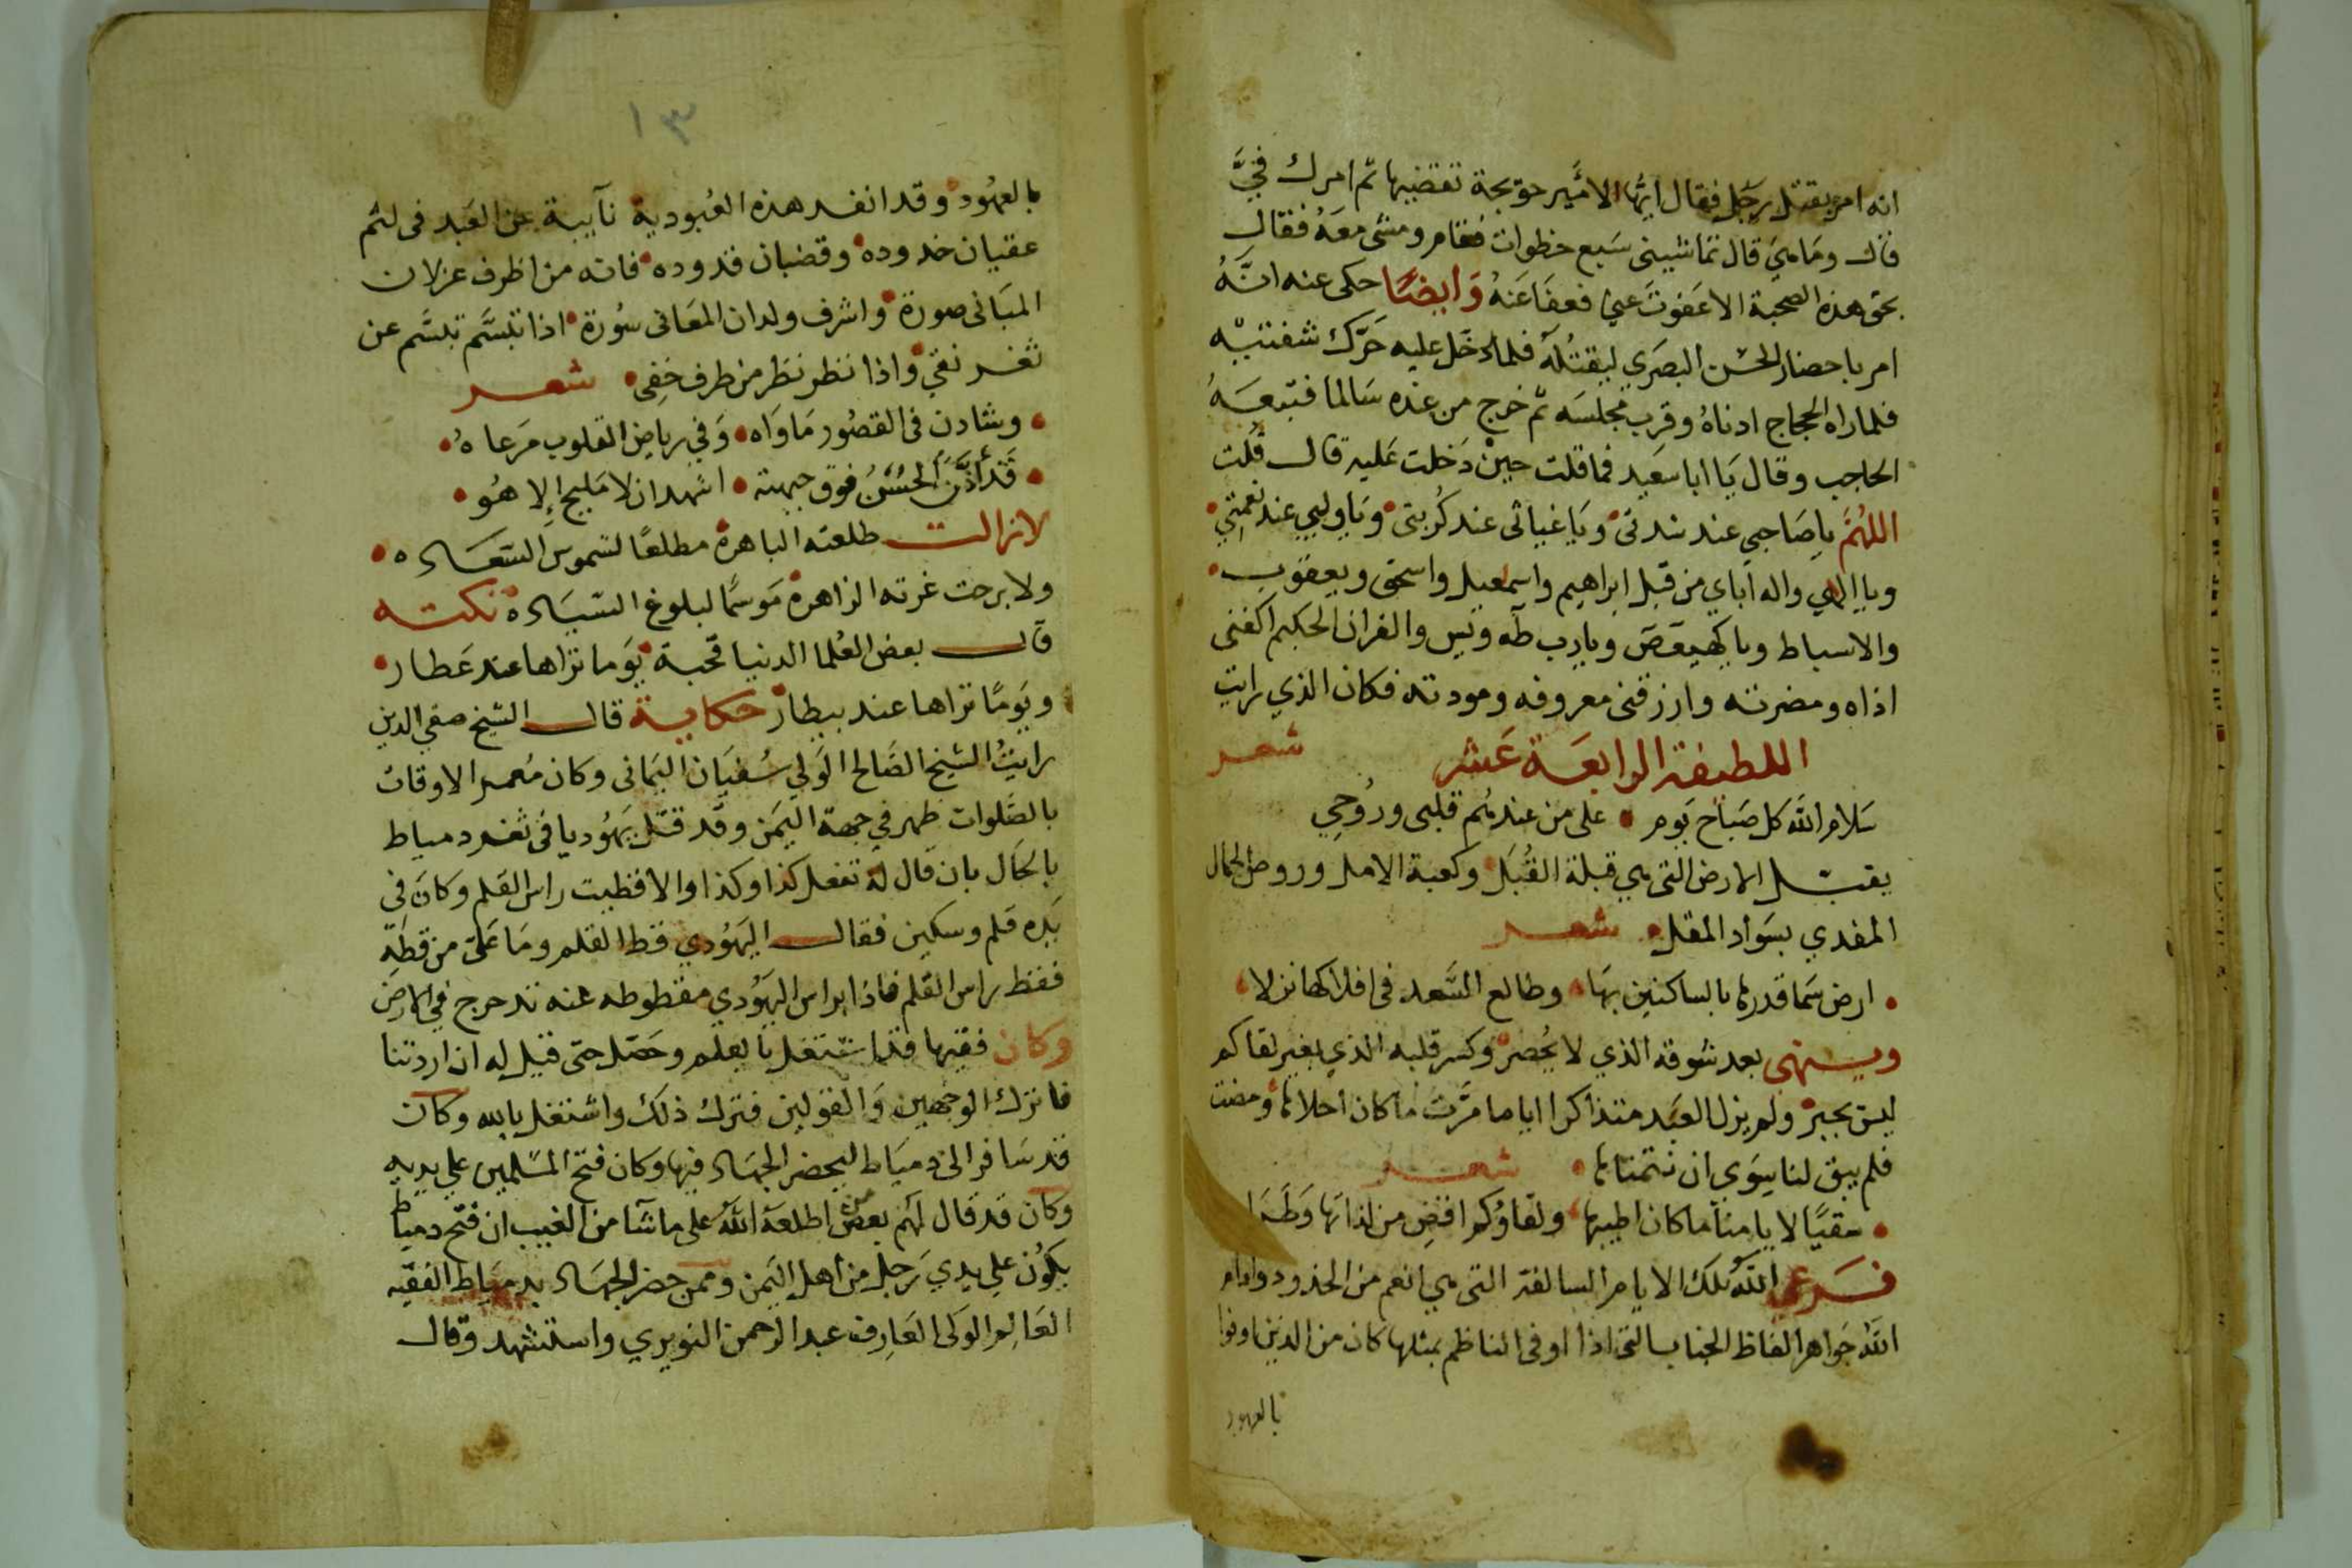 انه امر بقتل رجل فقال ايها الامير حويجة تقضيها ثم امرك فيَّ
قال وما هي قال تماشيني سبع خطوات فقام ومشى معه فقال
بحق هذه الصحبة الا عفوت عني فعفا عنه وايضًا حكى عنه انه
امر باحضار الحسن البصري ليقتله فلما دخل عليه حرّك شفتيه
فلما راه الحجاج ادناه وقرب مجلسه ثم خرج من عنده سالما فتبعه
الحاجب وقال يا ابا سعيد فما قلت حين دخلت عليه قال قلت
اللهم يا صاحبي عند شدتي ويا غياثي عند كربتي ويا وليي عند نعمتي
ويا الهي واله اباي من قبل ابراهيم واسمعيل واسحق ويعقوب
والاسباط ويا كهيعص ويا رب طه ويس والقران الحكيم اكفني
اذاه ومضرته وارزقني معروفه ومودته فكان الذي رايت
اللطيفة الرابعة عشر شعر
سلام الله كل صباح يوم على من عندهم قلبي وروحي
يقبل الارض التي هي قبلة القبل وكعبة الامل وروض الجمال
المفدي بسواد المقل شعر
ارض سما قدرها بالساكنين بها وطالع السعد في افلاكها نزلا
وينهى بعد شوقه الذي لا يحصر وكسر قلبه الذي بغير لقاكم
ليس يجبر ولم يزل العبد متذاكرا اياما مرّت ما كان احلاها ومضت
فلم يبق لنا سوى ان نتمناها شعر
سقيًا لايامنا ما كان اطيبها ولقاؤكم اقض من لذاتها وطرا
فرعى الله تلك الايام السالفة التي هي انعم من الخدود وادام
الله جواهر الفاظ الجناب التي اذا اوفى الناظم بمثلها كان من الذين اوفوا
بالعهود
١٣
بالعهود وقد انفد هذه العبودية نآيبة عن العبد في لثم
عقيان خدوده وقضبان قدوده فانه من اظرف غزلان
المباني صورة واشرف ولدان المعاني سورة اذا تبسّم تبسّم عن
ثغر نقي واذا نظر نظر من طرف خفي شعر
وشادن في القصور ماواه وفي رياض القلوب مرعاه
قد أذّن الحسن فوق جبهته اشهد ان لا مليح الا هو
لا زالت طلعته الباهرة مطلعًا لشموس السعاده
ولا برحت غرته الزاهرة موسمًا لبلوغ السياده نكته
قال بعض العلما الدنيا قحبة يوما تراها عند عطار
ويومًا تراها عند بيطار حكاية قال الشيخ صفي الدين
رايت الشيخ الصالح الولي سفيان اليماني وكان معمر الاوقات
بالصلوات ظهر في جهة اليمن وقد قتل يهوديا في ثغر دمياط
بالحال بان قال له تفعل كذا وكذا والا قطيت راس القلم وكان في
يده قلم وسكين فقال اليهودي قط القلم وما علي من قطه
فقط راس القلم فاذا براس اليهودي مقطوطه عنه تدحرج في الارض
وكان فقيها قد اشتغل بالعلم وحصّل حتى قيل له ان اردتنا
فاترك الوجهين والقولين فترك ذلك واشتغل بالله وكان
قد سافر الى دمياط ليحضر الجهاد فيها وكان فتح المسلمين على يديه
وكان قد قال لهم بعض من اطلعه الله على ما شآ من الغيب ان فتح دمياط
يكون على يدي رجل من اهل اليمن وممن حضر الجهاد بدمياط الفقيه
العالم الولي العارف عبد الرحمن النويري واستشهد وقال